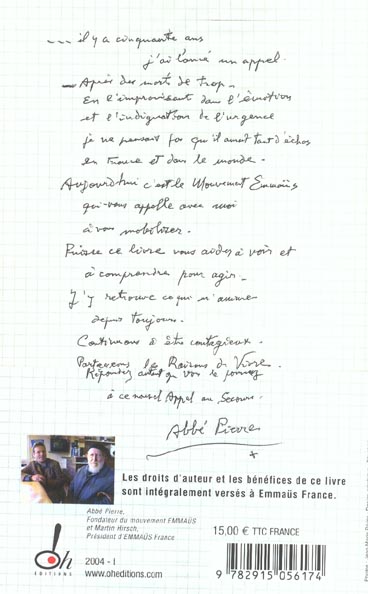 ... il y a cinquante ans
j'ai lancé un appel.
Après des morts de trop.
En l'improvisant dans l'émotion
et l'indignation de l'urgence
je ne pensais pas qu'il aurait tant d'échos
en France et dans le monde.
Aujourd'hui c'est le Mouvement Emmaüs
qui vous appelle avec moi
à vous mobiliser.
Puisse ce livre vous aider à voir et
à comprendre pour agir.
J'y retrouve ce qui m'anime
depuis toujours.
Continuons à être contagieux.
Partageons les Raisons de Vivre.
Répondez autant que vous le pouvez
à ce nouvel Appel au Secours.
Abbé Pierre
Les droits d'auteur et les bénéfices de ce livre
sont intégralement versés à Emmaüs France.
Abbé Pierre,
Fondateur du mouvement EMMAÜS
et Martin Hirsch,
Président d'EMMAÜS France
15,00 € TTC FRANCE
Oh
ÉDITIONS
2004 - I
www.oheditions.com
9 782915 056174